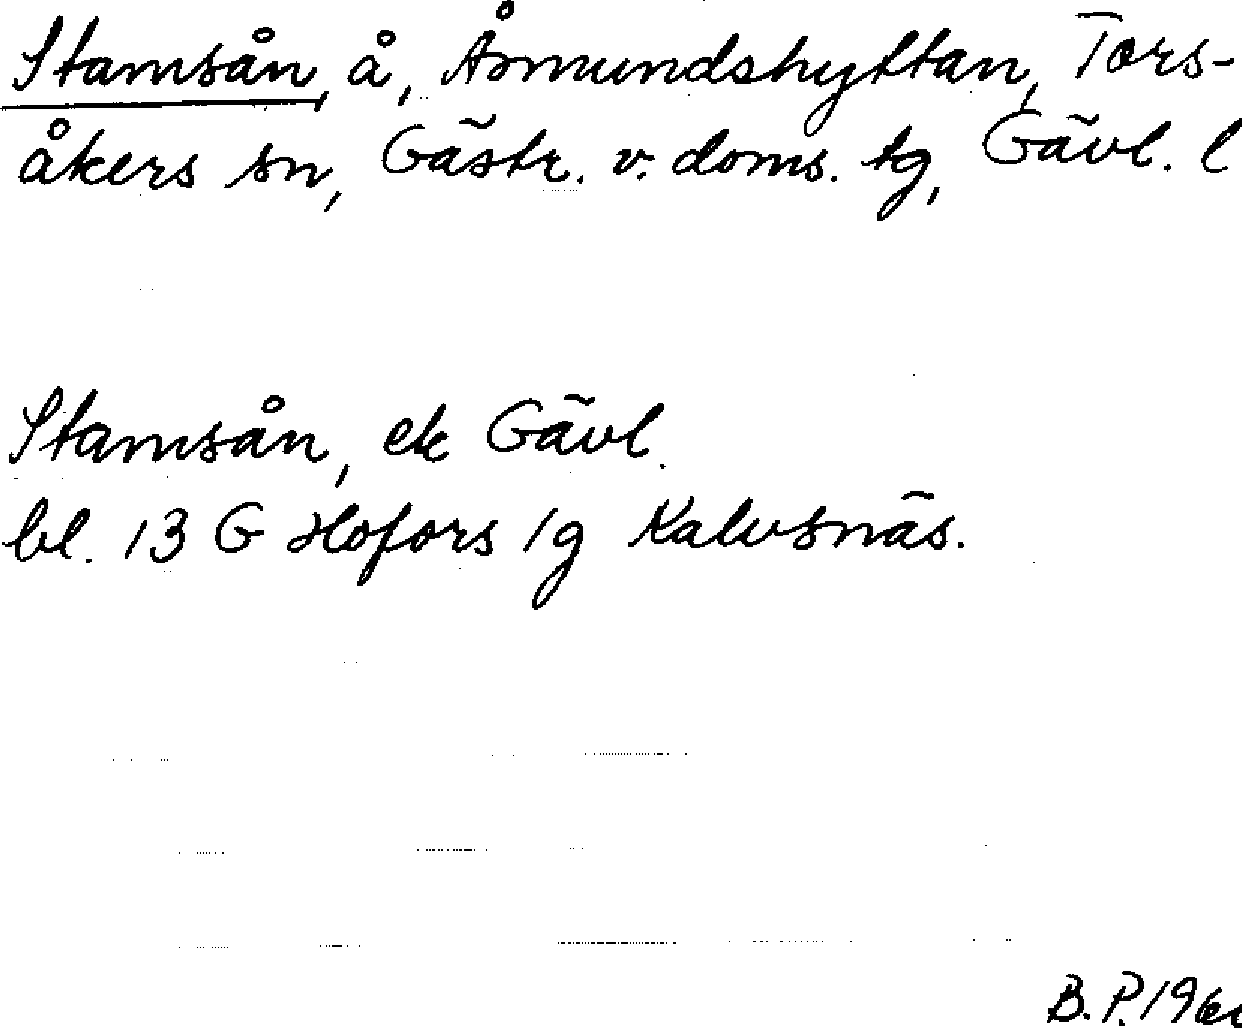 Stamsån, å, Åsmundshyttan, Tors-
åkers sn, Gästr. v. doms. tg, Gävl. l
Stamsån, ek Gävl.
bl. 13 G Hofors 1g Kalvsnäs.
B.P.